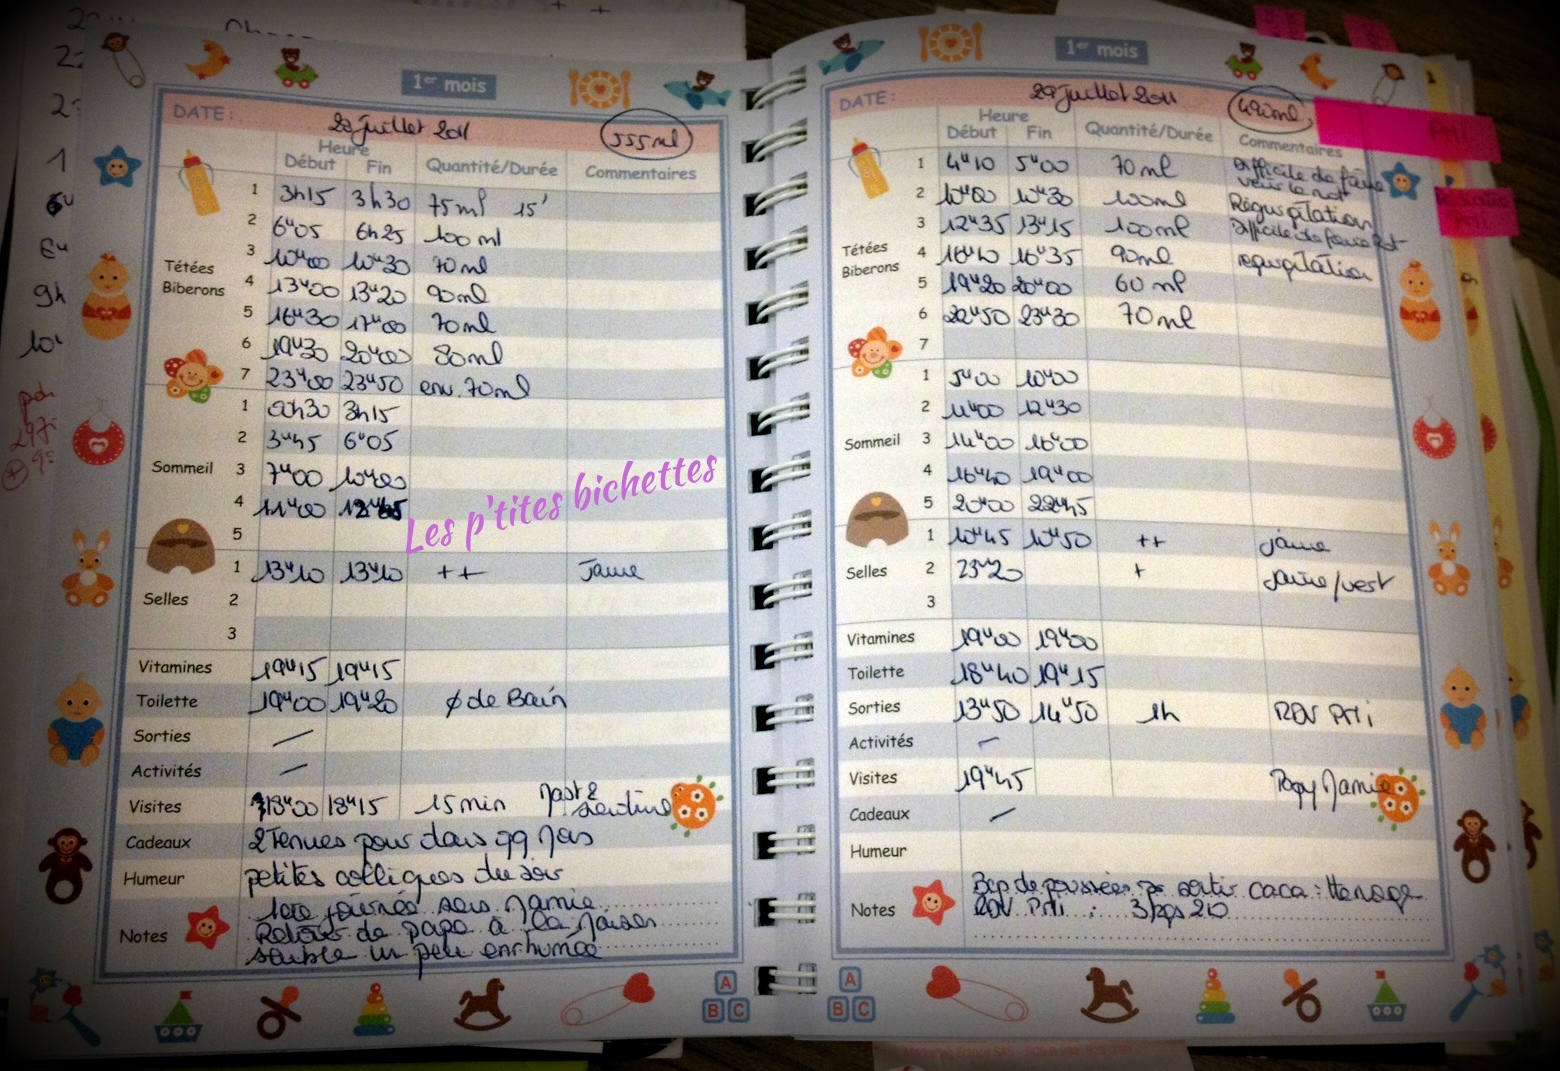 1er mois
DATE : 28 Juillet 2011 555ml
Heure
Début Fin Quantité/Durée Commentaires
Tétées
Biberons
1 3h15 3h30 75ml 15'
2 6h05 6h25 100ml
3 10h00 10h30 70ml
4 13h00 13h20 90ml
5 16h30 17h00 70ml
6 19h30 20h00 80ml
7 23h00 23h50 env. 70ml
Sommeil
1 00h30 3h15
2 3h45 6h05
3 7h00 10h00
4 11h00
5
Selles
1 13h10 13h10 ++ Jaune
2
3
Vitamines 19h15 19h15
Toilette 19h00 19h20 ∅ de Bain
Sorties —
Activités —
Visites 18h00 18h15 15min
Cadeaux 2 Tenues pour dans qq mois
Humeur petites colliques du soir
Notes 1ère journée sans Mamie.
Retour de papa à la maison
semble un peu enrhumée
Les p'tites bichettes
1er mois
DATE : 29 Juillet 2011 490ml
Heure
Début Fin Quantité/Durée Commentaires
Tétées
Biberons
1 4h10 5h00 70ml Difficile de faire
venir le rot
2 10h00 10h30 100ml Régurgitation
3 12h35 13h15 100ml Difficile de faire rot
4 16h10 16h35 90ml regurgitation
5 19h20 20h00 60ml
6 22h50 23h30 70ml
7
Sommeil
1 5h00 10h00
2 11h00 12h30
3 14h00 16h00
4 16h40 19h00
5 20h00 22h45
Selles
1 10h45 10h50 ++ jaune
2 23h20 + jaune/vert
3
Vitamines 19h00 19h00
Toilette 18h40 19h15
Sorties 13h50 14h50 1h RDV PMi
Activités —
Visites 19h45 Papy Mamie
Cadeaux —
Humeur
Notes Bcp de poussées pr sortir caca : Menage
RDV PMi : 3kgs 210
PMi
PMi
A
B C
A
B C
9h